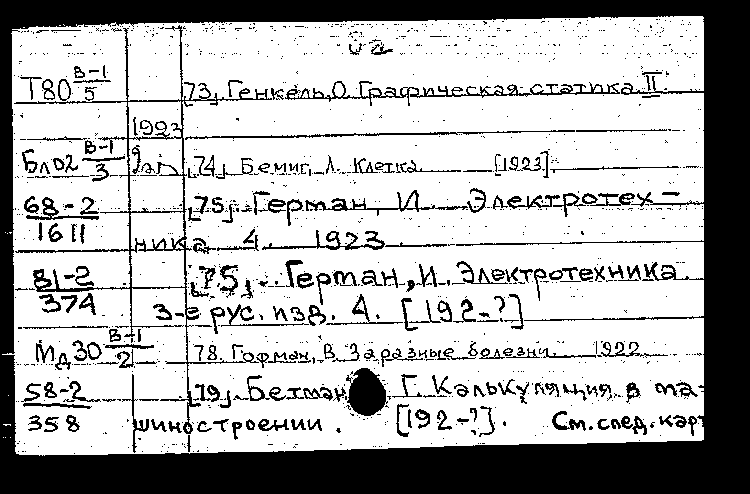 Т80 В-1/5 [73] Генкель, О. Графическая статика II.
1923
Бл02 В-1/3 [74] Бемиг, Л. Клетка. [1923].
68-2/1611 [75] Герман, И. Электротех-
ника 4. 1923
81-2/374 [75]. Герман, И. Электротехника.
3-е рус. изд. 4. [192-?]
Мд30 В-1/2 78. Гофман, В. Заразные болезни. 1922
58-2/358 [79] Бетман Г. Калькуляция в ма-
шиностроении. [192-?]. См. след. карт